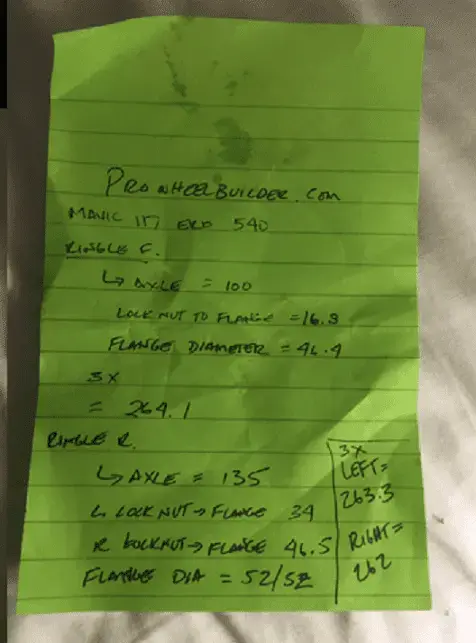 PROWHEELBUILDER.COM
MAVIC 117 ERD 540
RINGLE F.
↳ AXLE = 100
LOCK NUT TO FLANGE = 16.8
FLANGE DIAMETER = 46.4
3X
= 264.1
RINGLE R.
↳ AXLE = 135
L LOCKNUT → FLANGE 34
R LOCKNUT → FLANGE 46.5
FLANGE DIA = 52/52
3X
LEFT =
263.3
RIGHT =
262